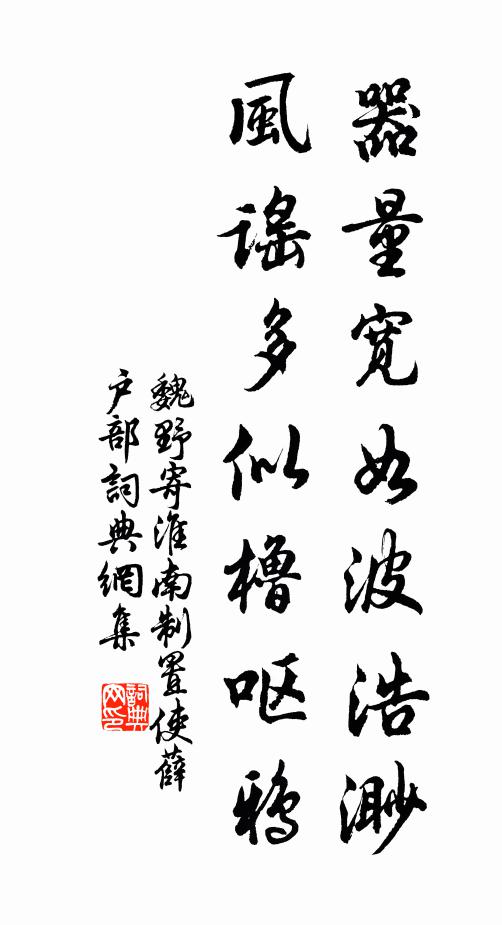 器量寬如波浩渺
風謠多似櫓呕鴉
魏野寄淮南制置使薛
戶部詞典網集
詞典網印